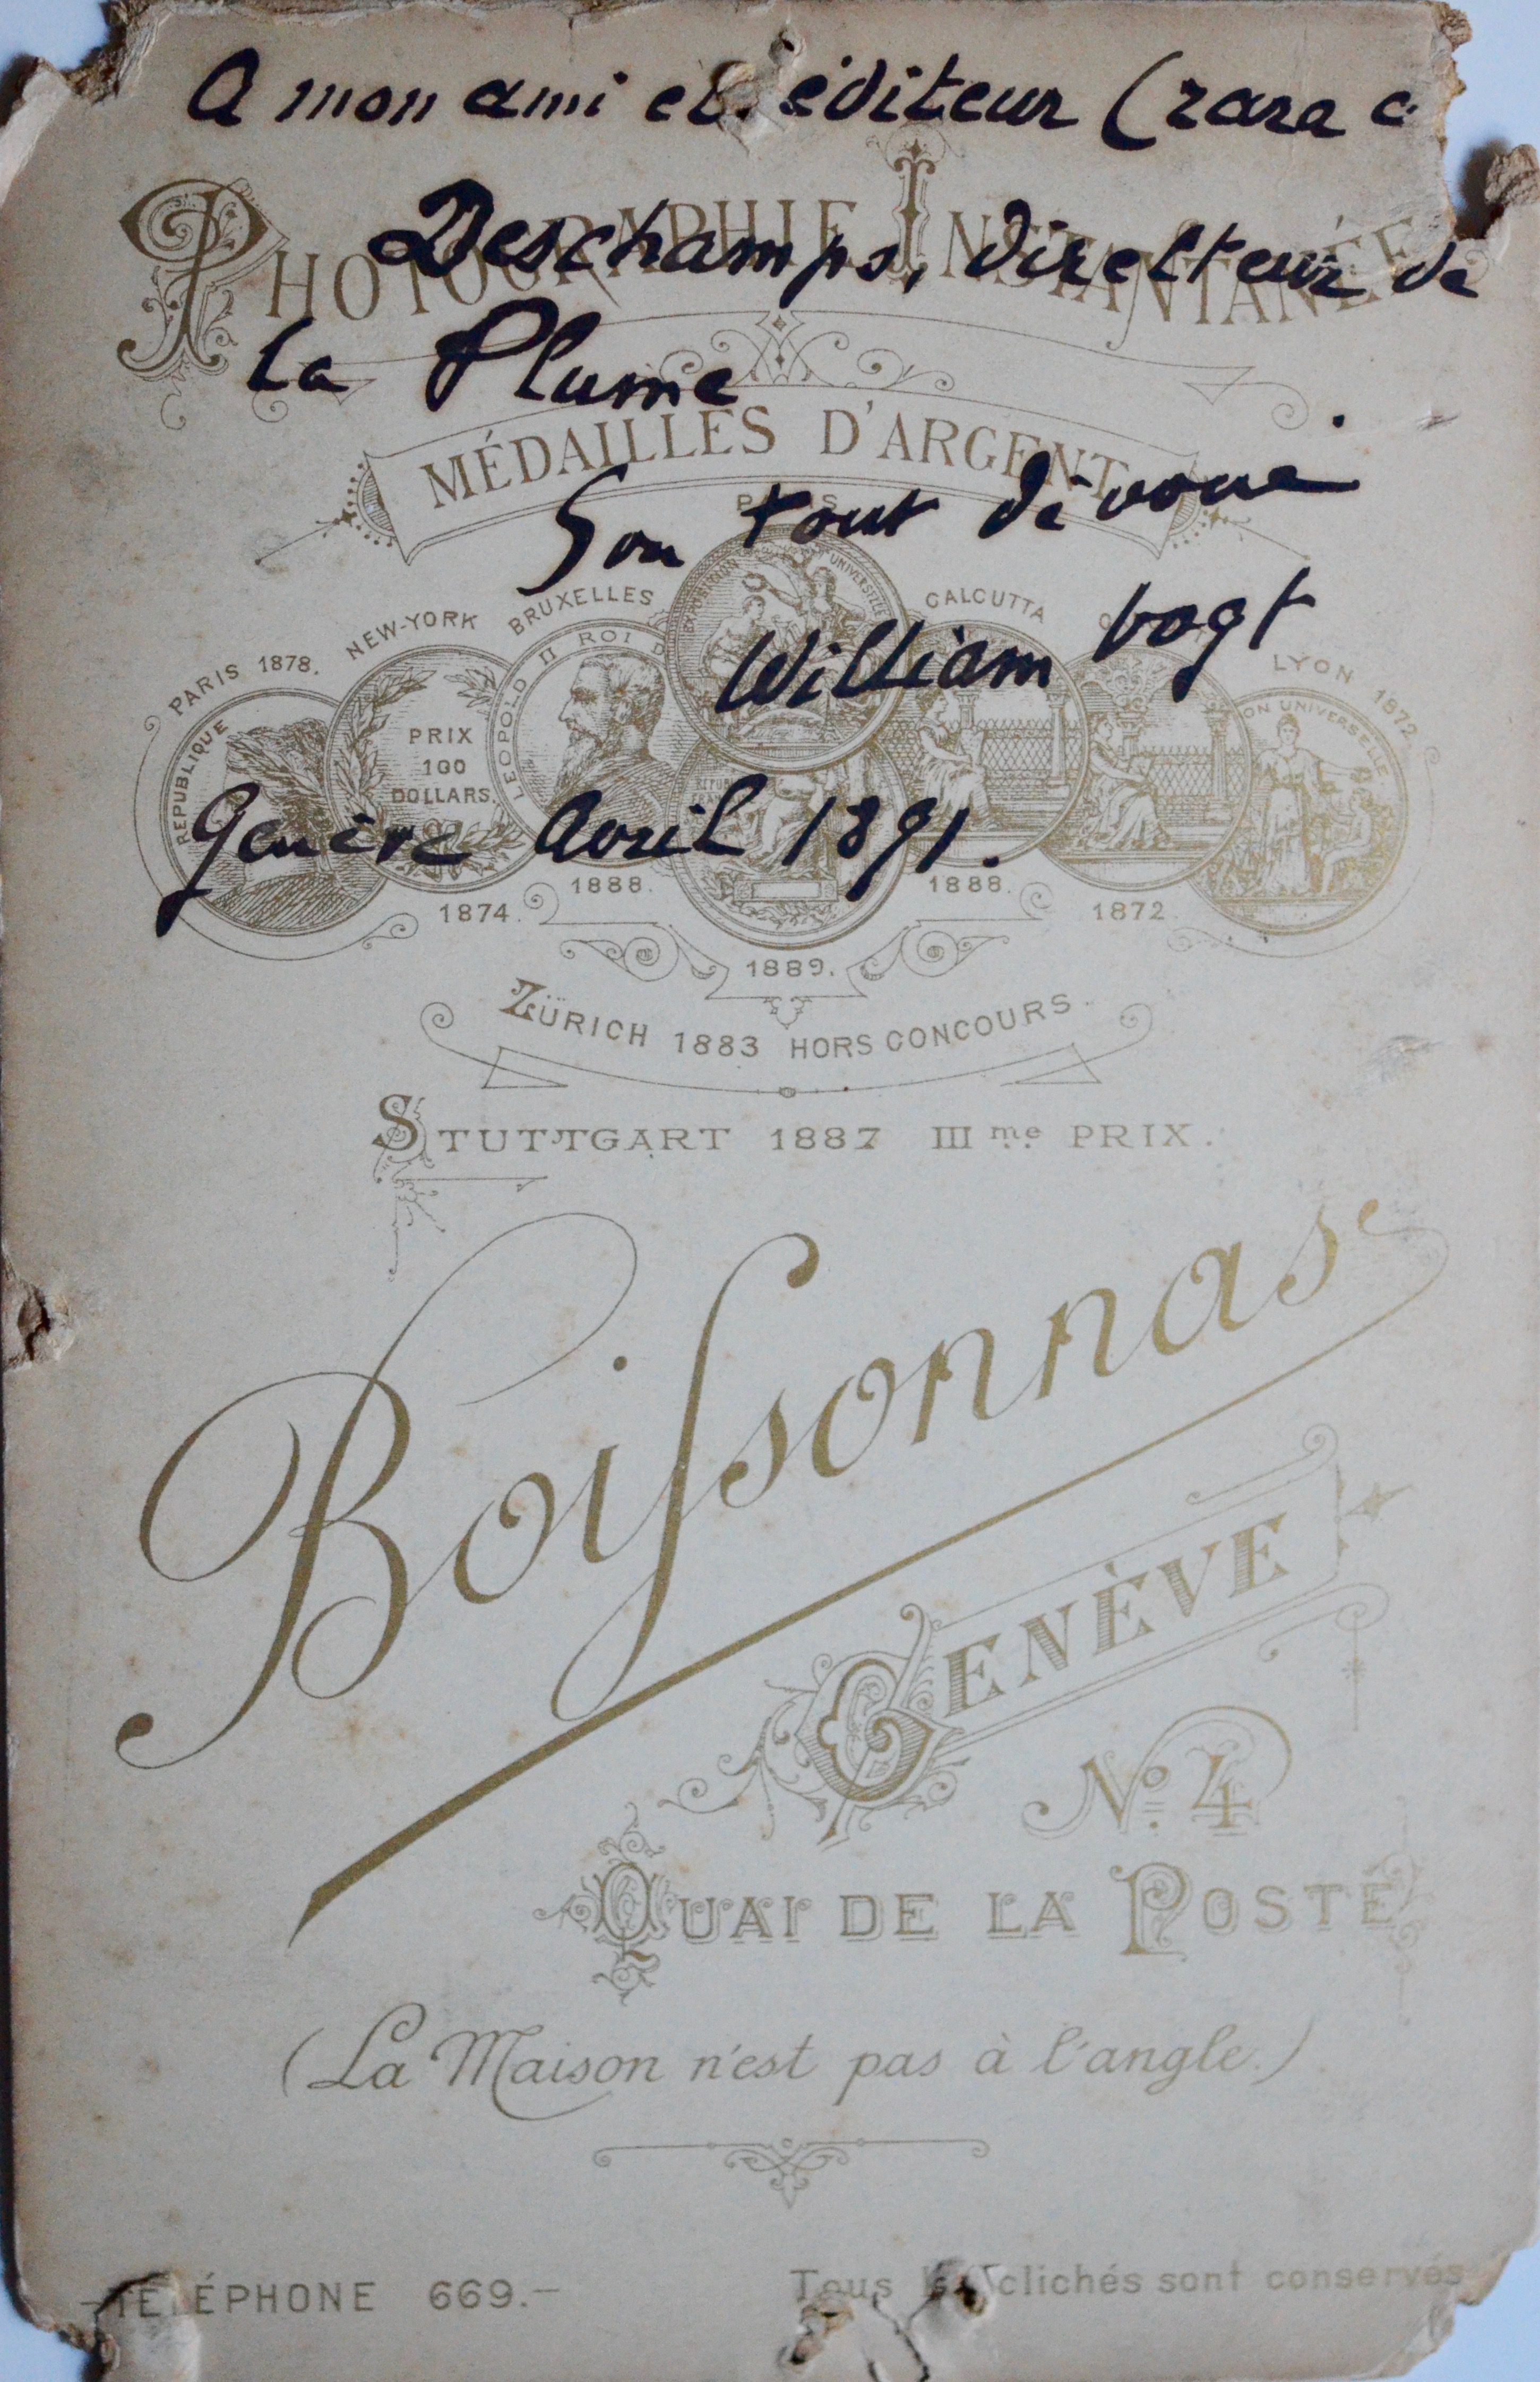 A mon ami et éditeur (rara
PHOTOGRAPHIE INSTANTANÉE
Deschamps, directeur de
la Plume
MÉDAILLES D'ARGENT
Son tout dévoué
PARIS
William Vogt
PARIS 1878.
NEW-YORK
BRUXELLES
CALCUTTA
LYON 1872
REPUBLIQUE
PRIX
100
DOLLARS.
LEOPOLD II ROI
EXPOSITION UNIVERSELLE
ON UNIVERSELLE
Genève Avril 1891.
1874.
1888.
1889.
1888.
1872.
ZÜRICH 1883 HORS CONCOURS
STUTTGART 1887 IIIme PRIX.
Boissonnas
GENÈVE
No. 4
QUAI DE LA POSTE
(La Maison n'est pas à l'angle.)
-TÉLÉPHONE 669.-
Tous les clichés sont conservés